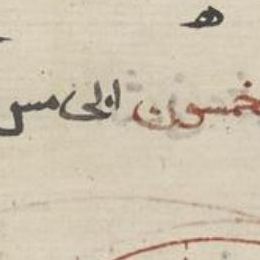 ه
خمسون الى مس